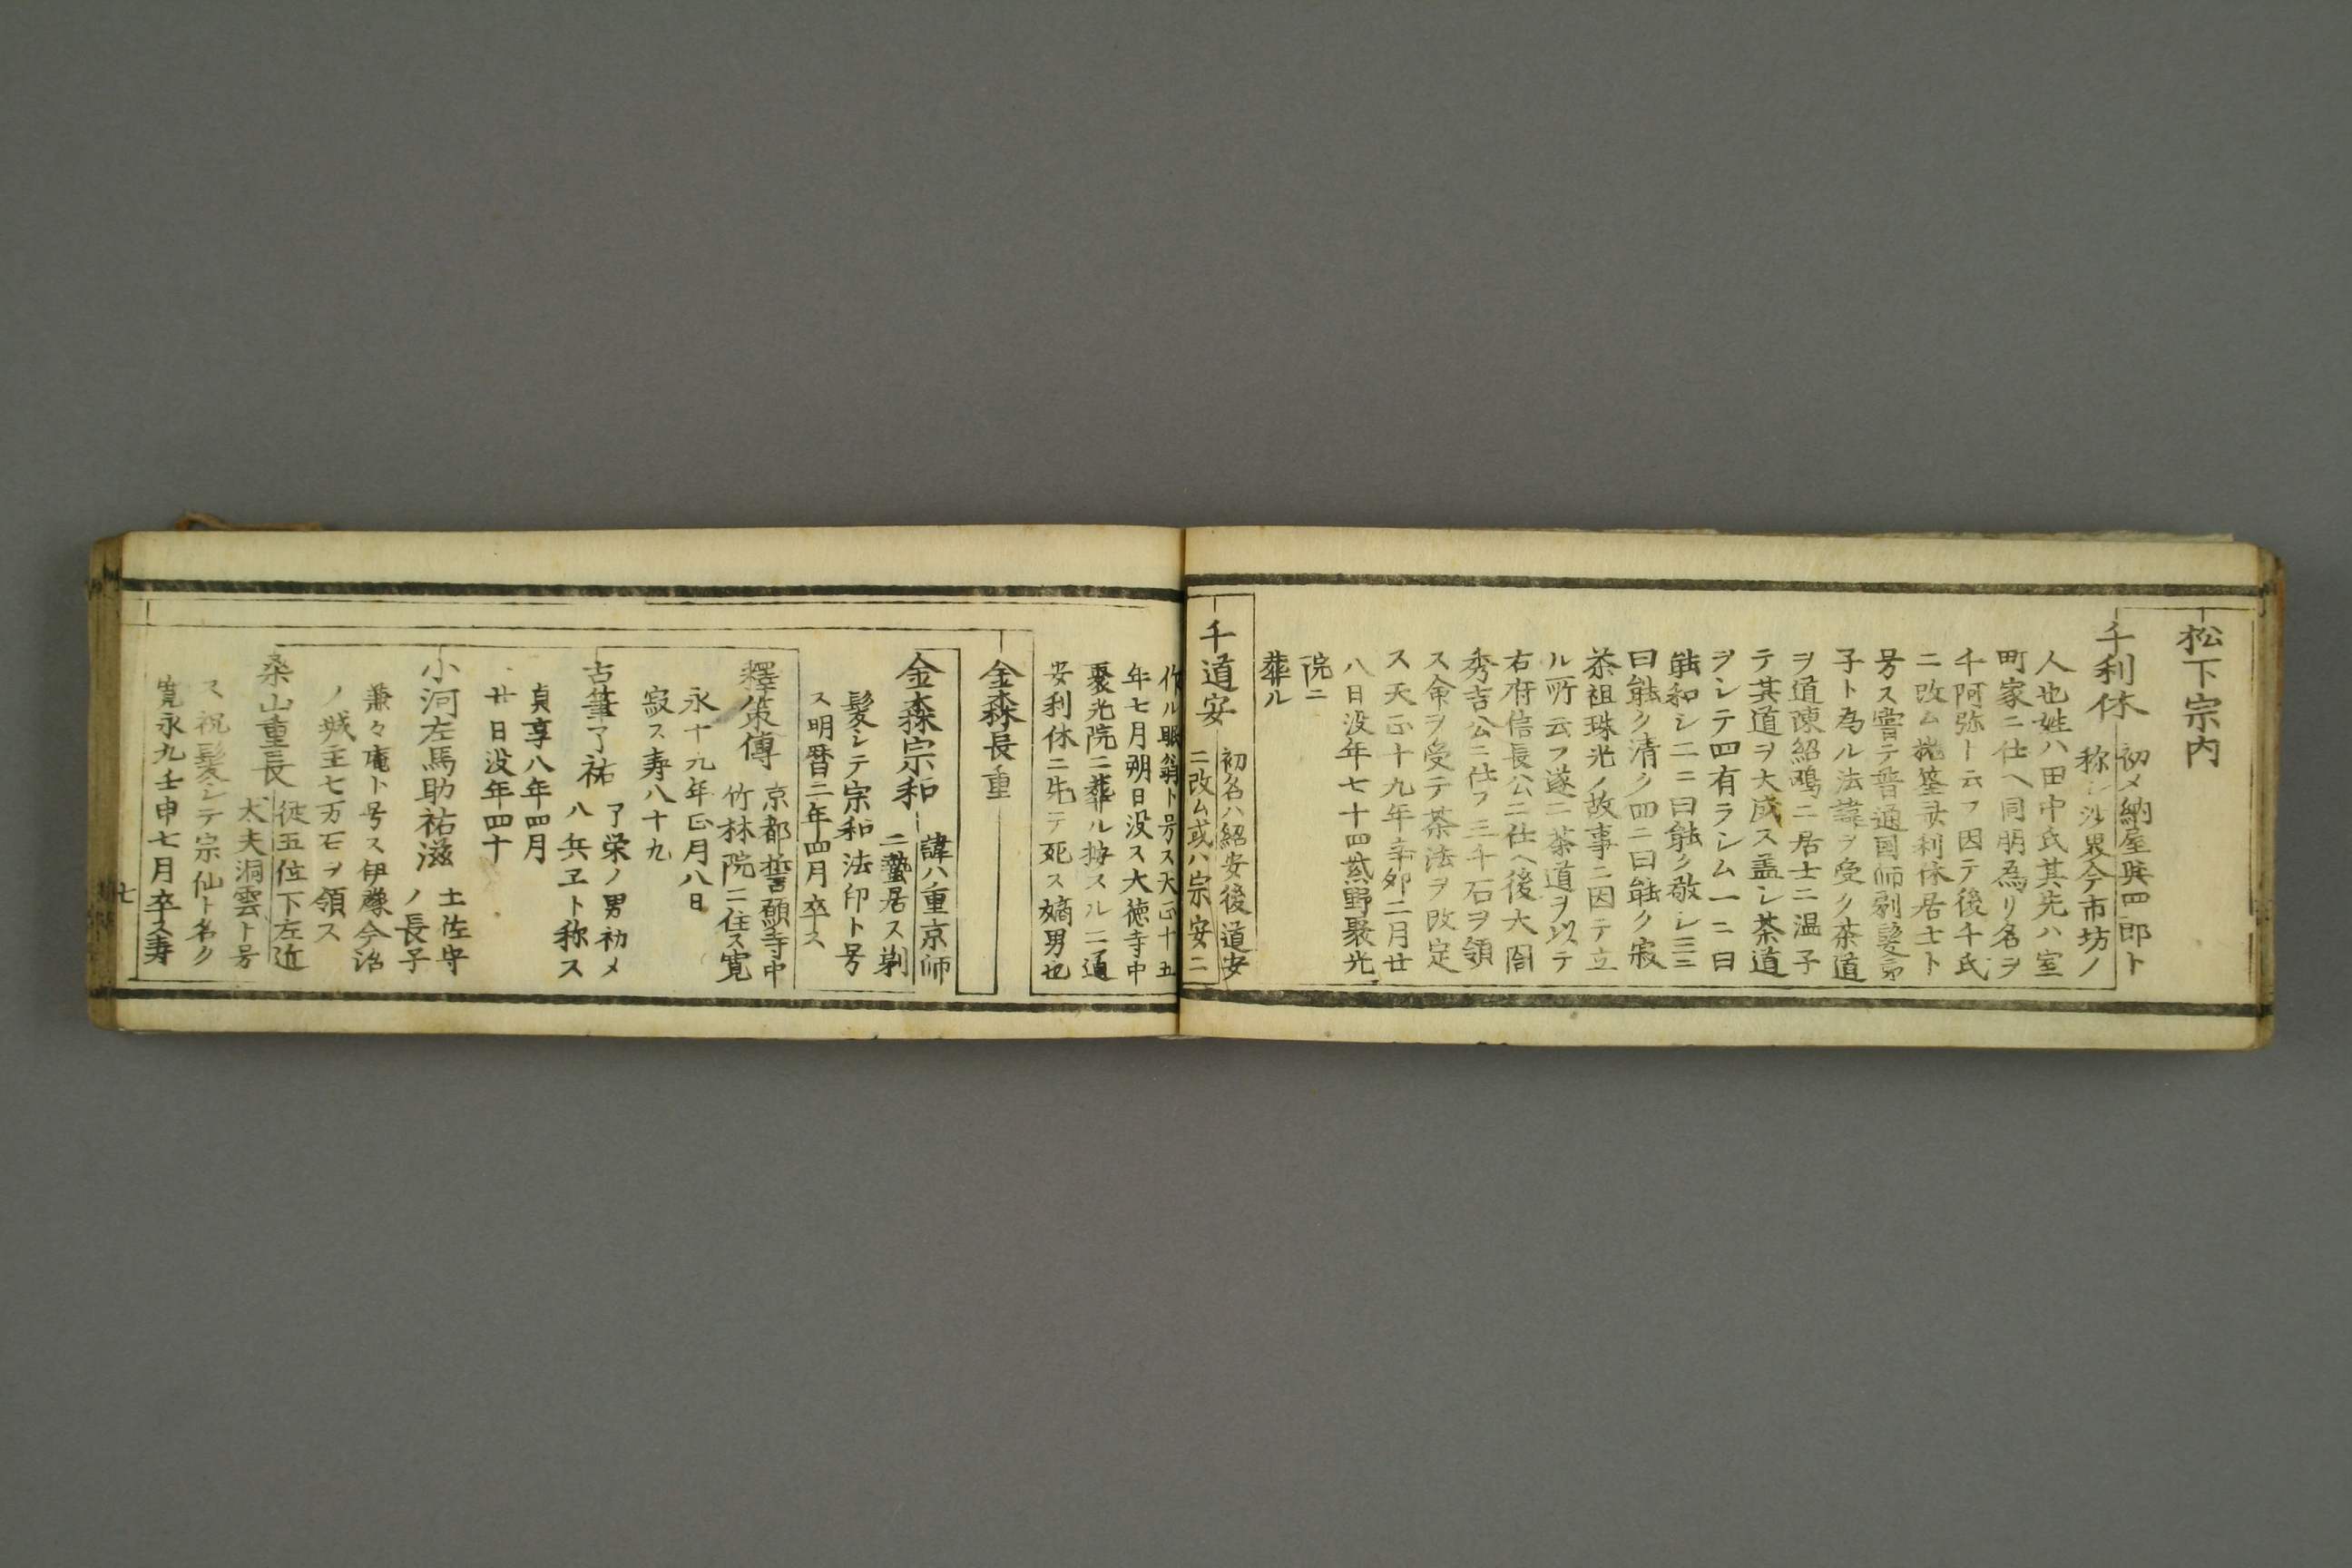 松下宗内
千利休 初メ納屋與四郎ト
称シ沙界今市坊ノ
人也姓ハ田中氏其先ハ室
町家ニ仕ヘ同朋為リ名ヲ
千阿弥ト云フ因テ後千氏
ニ改ム抛筌斎利休居士ト
号ス嘗テ普通国師剃髪弟
子ト為ル法諱ヲ受ク茶道
ヲ道陳紹鴎ニ居士ニ温子
テ其道ヲ大成ス盖シ茶道
ヲシテ四有ラシム一ニ曰
能和シ二ニ曰能ク敬シ三ニ
曰能ク清ク四ニ曰能ク寂
茶祖珠光ノ故事ニ因テ立
ル所云フ遂ニ茶道ヲ以テ
右府信長公ニ仕ヘ後大閤
秀吉公ニ仕フ三千石ヲ領
ス命ヲ受テ茶法ヲ改定
ス天正十九年辛卯二月廿
八日没年七十四紫野聚光
院ニ
葬ル
千道安 初名ハ紹安後道安
ニ改ム或ハ宗安ニ
作ル眠翁ト号ス天正十五
年七月朔日没ス大徳寺中
聚光院ニ葬ル按スルニ道
安利休ニ先テ死ス嫡男也
金森長重
金森宗和 諱ハ重京師
ニ蟄居ス剃
髪シテ宗和法印ト号
ス明暦二年四月卒ス
釋策傳 京都誓願寺中
竹林院ニ住ス寛
永十九年正月八日
寂ス寿八十九
古筆了祐 了栄ノ男初メ
八兵ヱト称ス
貞享八年四月
廿日没年四十
小河左馬助祐滋 土佐守
ノ長子
兼々庵ト号ス伊豫今治
ノ城主七万石ヲ領ス
桑山重長 従五位下左近
太夫洞雲ト号
ス祝髪シテ宗仙ト名ク
寛永九壬申七月卒ス寿
七